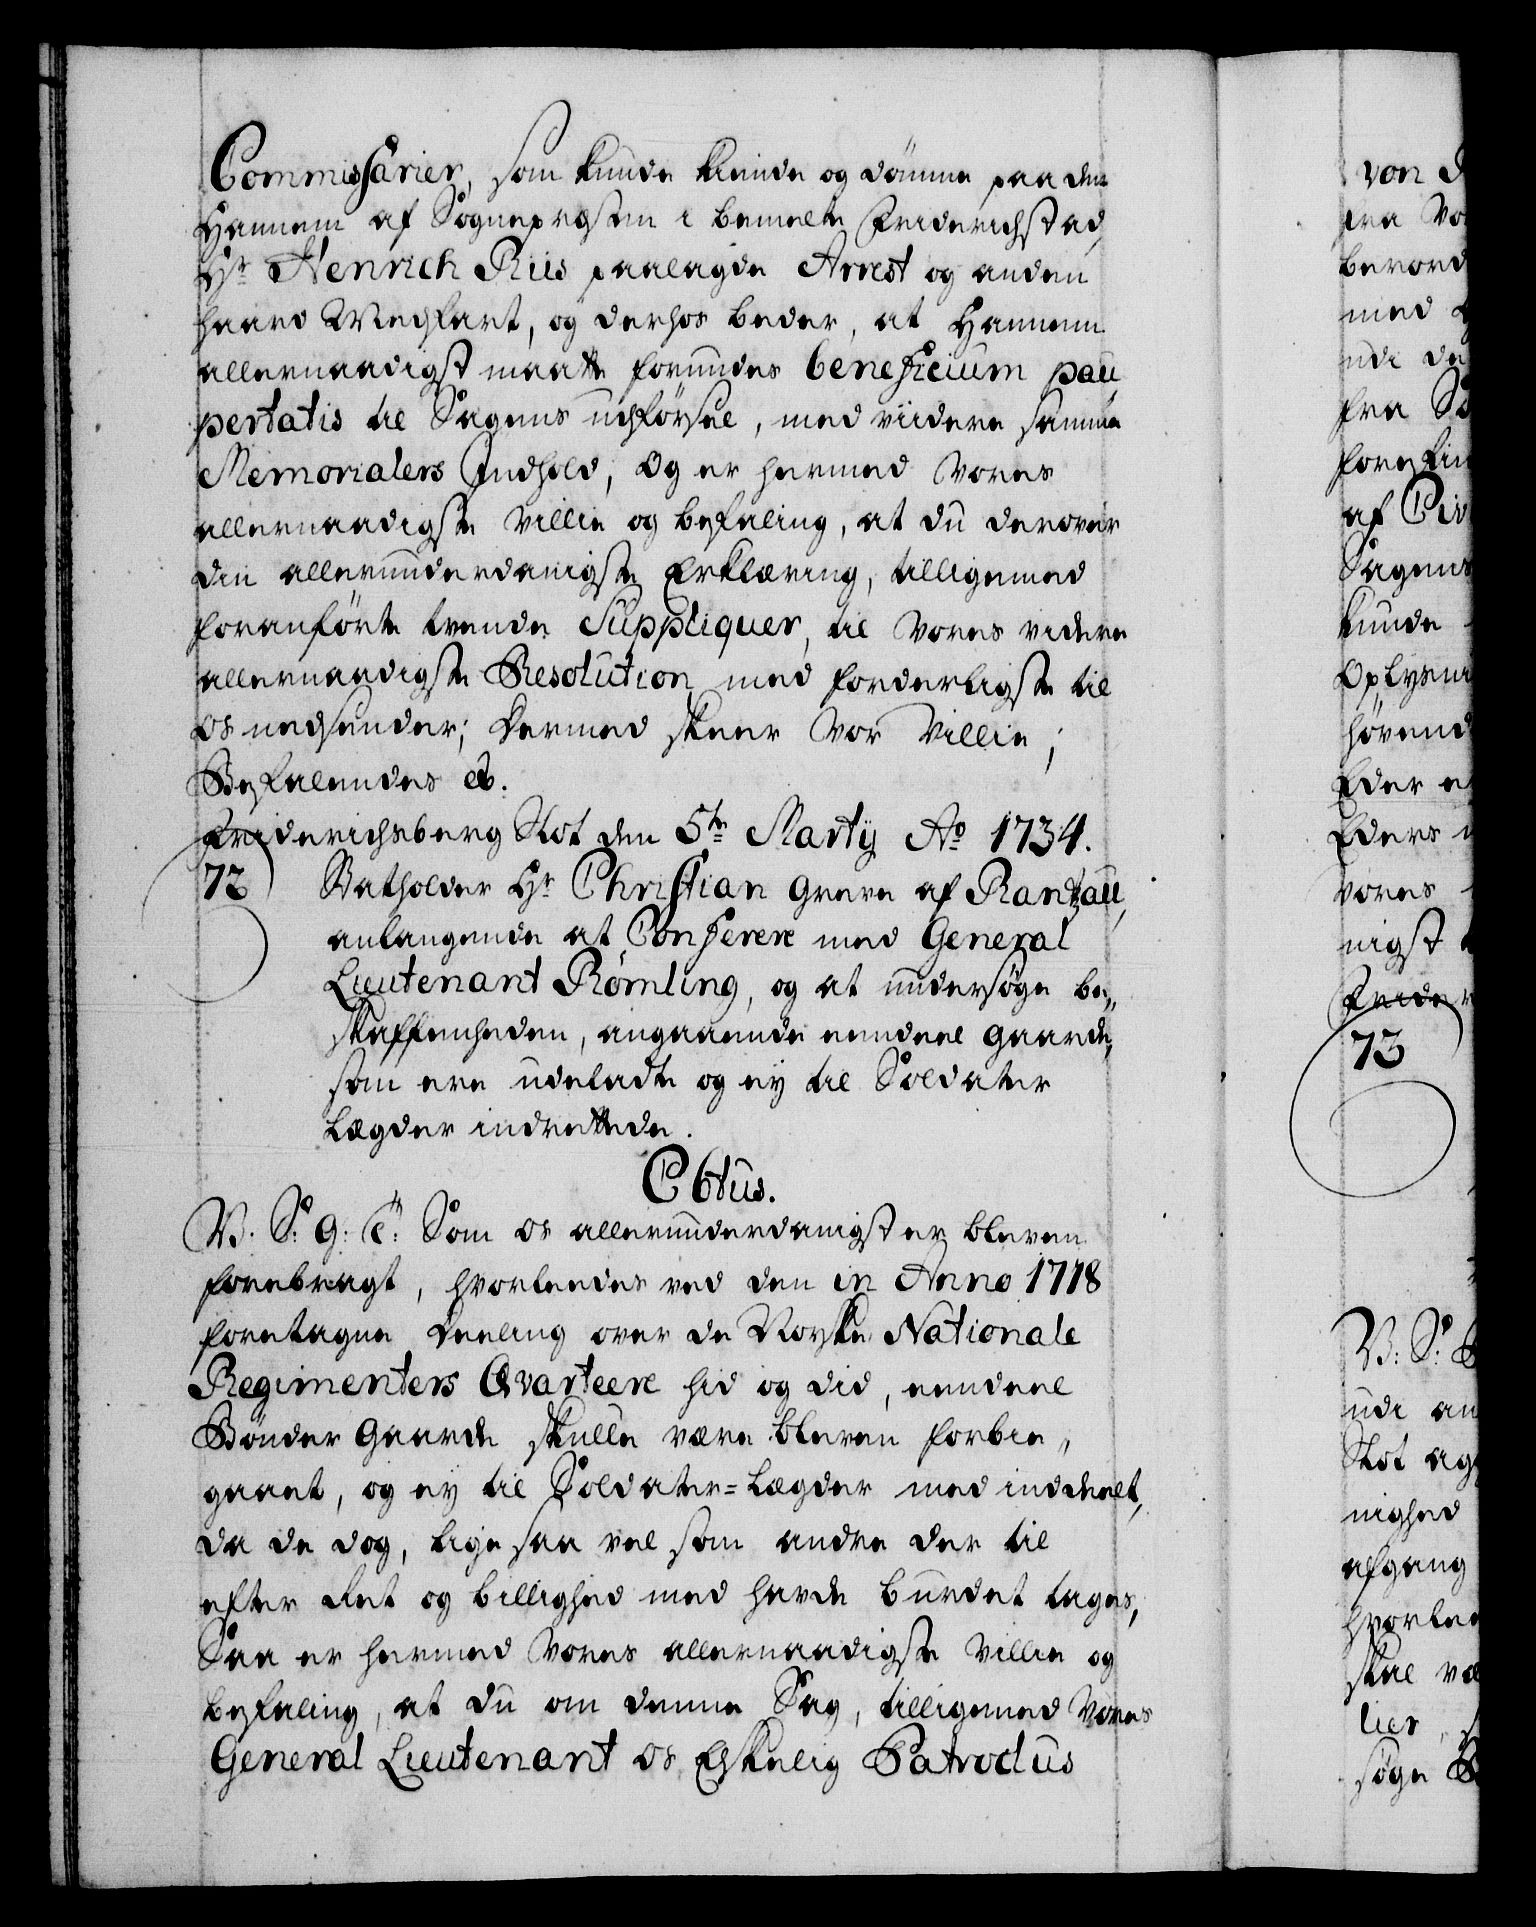 Commissarier, som kunde kiende og dömme paa den
Hannem af Sognepræsten i bemelte Friderichstad,
Hr Henrich Riis paalagde Arrest og anden
haard Medfart, og derhos beder, at Hannem
allernaadigst maatte forundes beneficium pau
pertatis til Sagens udförsel, med viidere samme
Memorialers Indhold, Og er hermed Vores
allernaadigste Villie og befaling, at du derover
din allerunderdanigste Erklæring, tilligemed
foranförte tvende Suppliquer, til Vores videre
allernaadigste Resolution med forderligste til
os nedsender; Dermed skeer Vor Villie;
Befalendes etc.
Friderichsberg Slot den 5te Martij Ao 1734.
72 Statholder Hr Christian Greve af Rantzau,
anlangende at Conferere med General
Lieutenant Römling, og at undersöge be„
skaffenheden, angaaende eendeel Gaarde,
som ere udeladte og ey til Soldater
Lægder indrettede.
C 6tus.
V. S: G: T: Som os allerunderdanigst er bleven
forebragt, hvorleedes ved den in Anno 1718
foretagne Deeling over de Norske Nationale
Regimenters Qvarteere hid og did, eendeel
Bönder Gaarde skulle være bleven forbie„
gaaet, og ey til Soldater=Lægder med inddeelt,
da de dog, lige saa vel som andre der til
efter Ret og billighed med havde burdet tages,
Saa er hermed Vores allernaadigste Villie og
befaling, at du om denne Sag, tilligemed Vores
General Lieutenant os Elskelig Patroclus
von
fra Vo
med
udi de
fra So
af Civ
Sagens
kunde
Oplysni
hörend
Eder e
Eders
Vores
nigst
Frider
73
V: S:
udi an
Slot ag
nighed
afgang
hvorlee
skal væ
lier,
söge